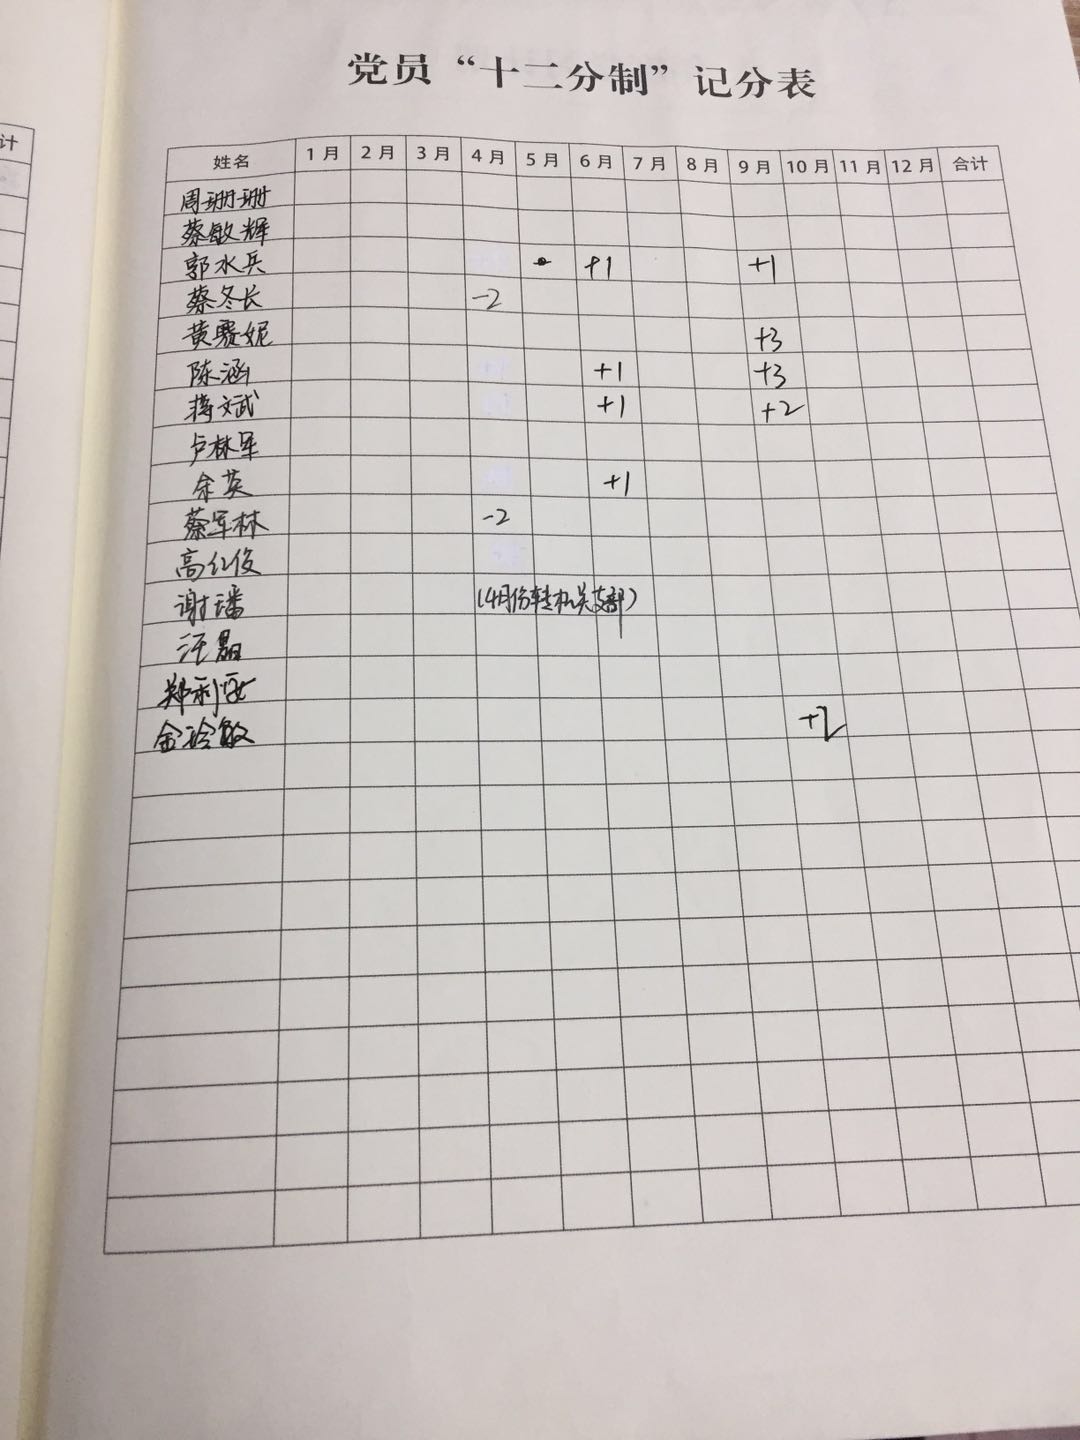 计
党员“十二分制”记分表
姓名 1月 2月 3月 4月 5月 6月 7月 8月 9月 10月 11月 12月 合计
周珊珊
蔡敏辉
郭水兵 +1 +1
蔡冬长 -2
黄赛妮 +3
陈涵 +1 +3
蒋文武 +1 +2
卢林军
余英 +1
蔡军林 -2
高红俊
谢璠 (4月份转机关支部)
汪晶
郑利
金玲敏 +2